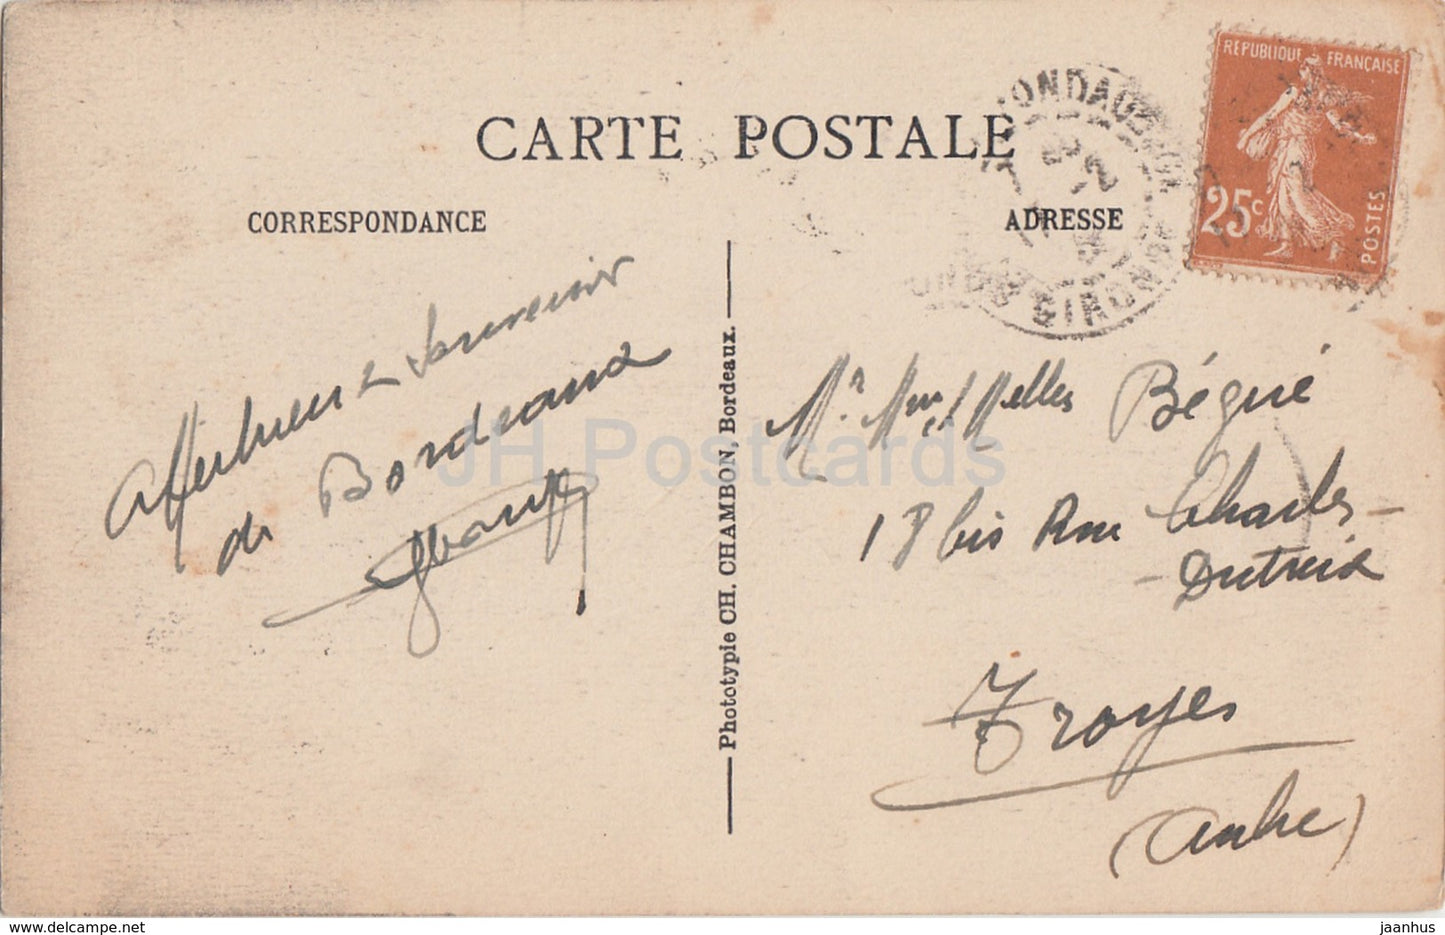 CARTE POSTALE
CORRESPONDANCE
ADRESSE
RÉPUBLIQUE FRANÇAISE
25c
POSTES
GIRONDE
Affectueux Souvenir
de Bordeaux
Phototypie CH. CHAMBON, Bordeaux.
Mr. Mme Melles Bégué
18 bis Rue Charles-
-Dutreix
Troyes
(Aube)
JH Postcards
delcampe.net
jaanhus